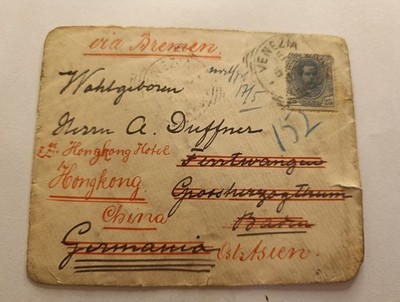 via Bremen.
VENEZIA
Wohlgeboren
17/5
Herrn A. Duffner
152
Hongkong Hotel
Furtwangen
Hongkong.
Grossherzogthum
China
Baden
Germania Ost Asien.